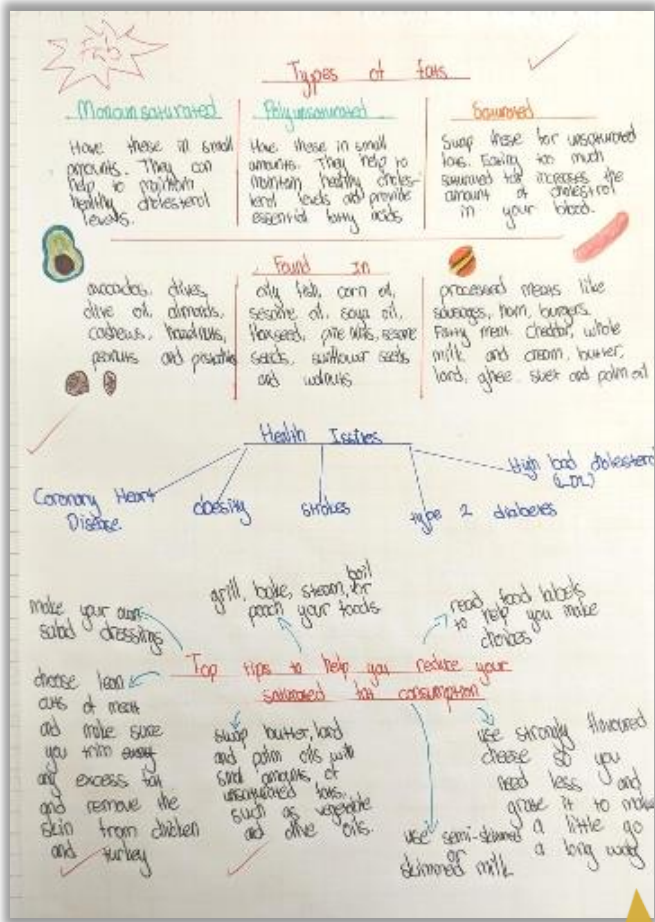 Fats
Types of fats
Monounsaturated
Have these in small
amounts. They can
help to maintain
healthy cholesterol
levels.
Polyunsaturated
Have these in small
amounts. They help to
maintain healthy choles-
terol levels and provide
essential fatty acids
Saturated
Swap these for unsaturated
fats. Eating too much
saturated fat increases the
amount of cholestrol
in your blood.
Found In
avocados, olives,
olive oil, almonds,
cashews, hazelnuts,
peanuts and pistachios
oily fish, corn oil,
sesame oil, soya oil,
flaxseed, pine nuts, sesame
seeds, sunflower seeds
and walnuts
processed meats like
sausages, ham, burgers.
Fatty meat. cheddar, whole
milk and cream, butter,
lard, ghee, suet and palm oil
Health Issues
Coronary Heart
Disease
obesity
strokes
type 2 diabetes
High bad cholesterol
(LDL)
make your own
salad dressings
grill, bake, steam, boil
or
poach your foods
read food labels
to help you make
choices
Top tips to help you reduce your
saturated fat consumption
choose lean
cuts of meat
and make sure
you trim
any excess fat
and remove the
skin from chicken
and turkey
swap butter, lard
and palm oils with
small amounts of
unsaturated fats.
such as vegetable
and olive oils.
use semi-skimmed
or
skimmed milk
use strongly flavoured
cheese so you
need less and
grate it to make
a little go
a long way